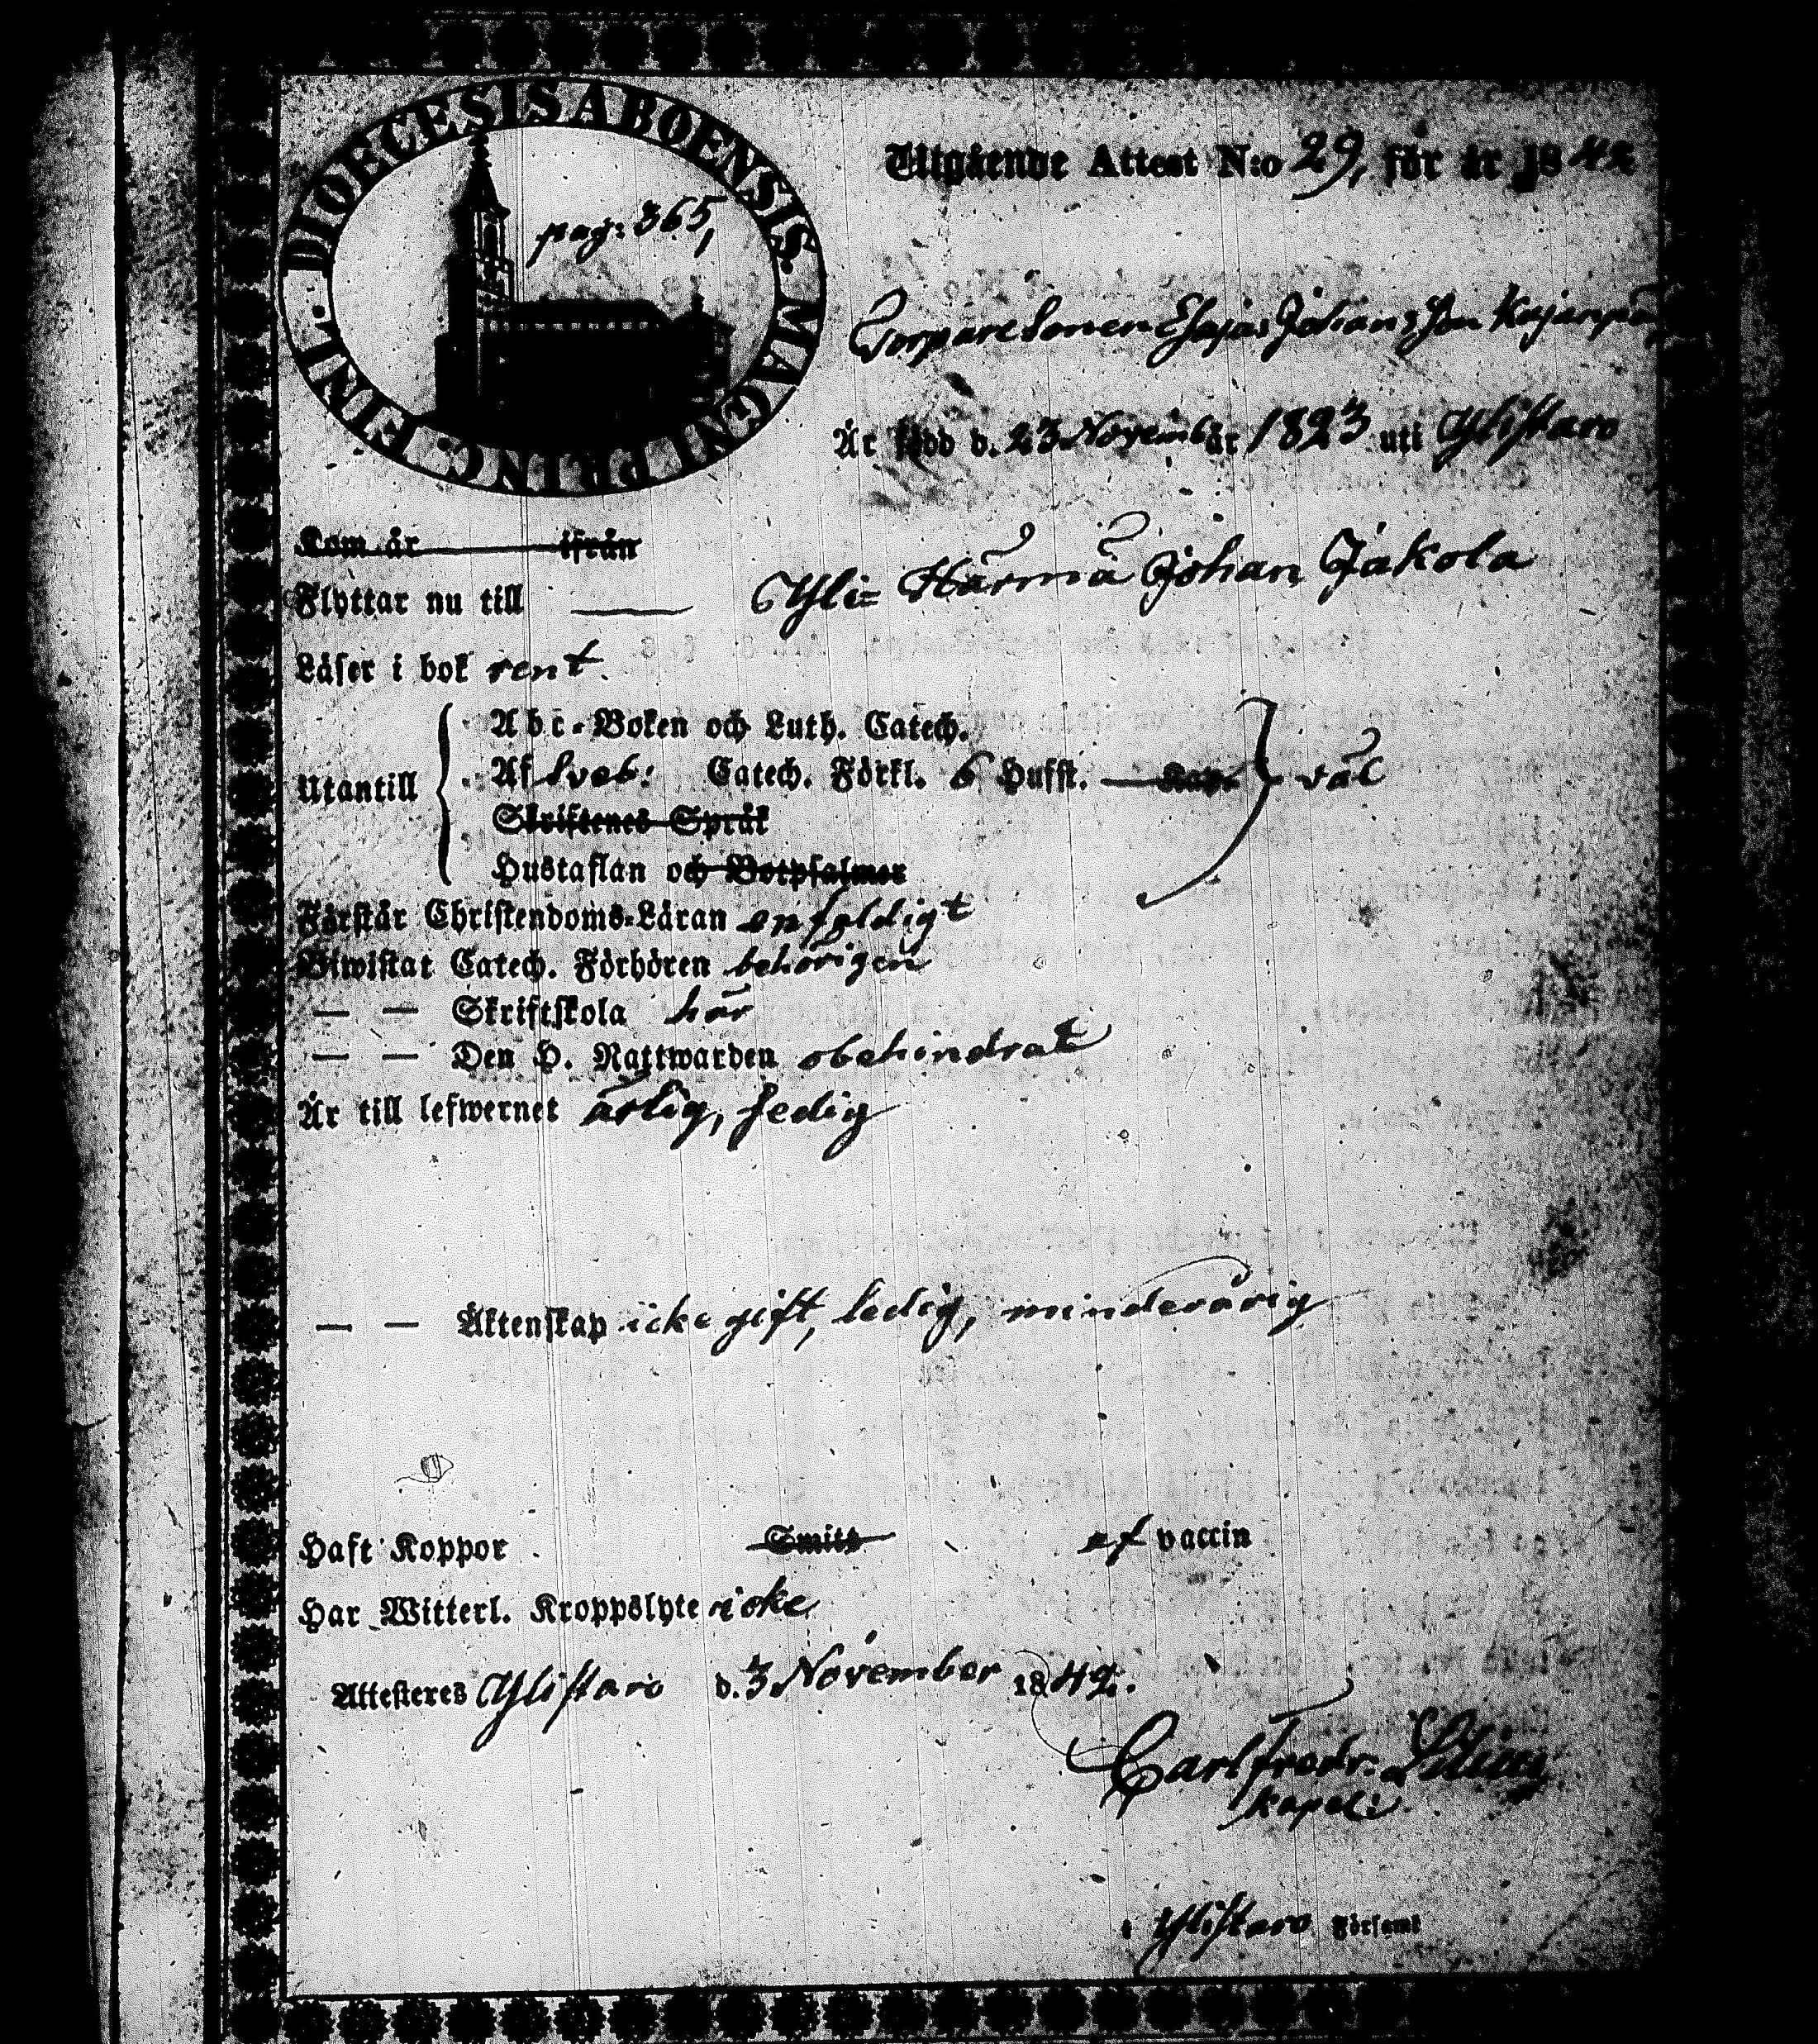 DIOECESIS ABOENSIS. MAGNI PRINC. FINL.
pag: 365,
Utgående Attest N:o 29, för år 1842
Torparesonen Esajas Johansson
Är född d. 23 November 1823 uti Ylistaro
Kom år ifrån
Flyttar nu till Yli= Härmä Johan Jakola
Läser i bok rent.
Abc-Boken och Luth. Catech.
Utantill
Af Sveb: Catech. Förkl. 6 Hufst. Kap. väl
Skriftenes Språk
Hustaflan och Botpsalmer
Förstår Christendoms-Läran enfoldigt
Biwistat Catech. Förhören behörigen
— — Skriftskola här
— — Den H. Nattwarden obehindrat
Är till lefwernet ärlig, sedig
— — Äktenskap icke gift, ledig, minderårig
Haft Koppor Smitt af vaccin
Har Witterl. Kroppslyte icke
Attesteres Ylistaro d. 3 November 1842.
Carl Fredr.
kapel:
i Ylistaro Församl